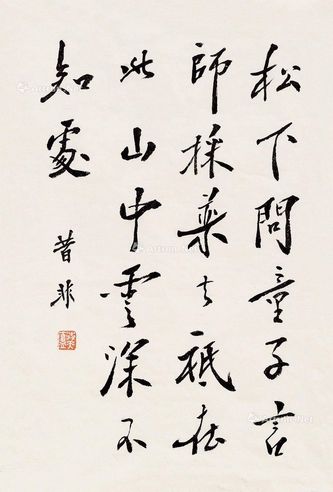 松下問童子言
師採藥去祇在
此山中雲深不
知處
昔非